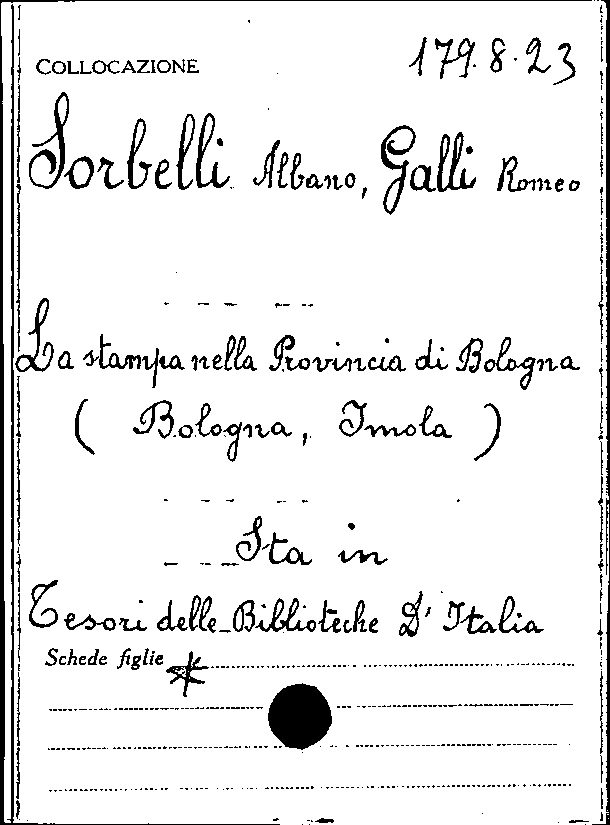 COLLOCAZIONE 179.8.23
Sorbelli Albano, Galli Romeo
La stampa nella Provincia di Bologna
( Bologna, Imola )
Sta in
Tesori delle Biblioteche D'Italia
Schede figlie *